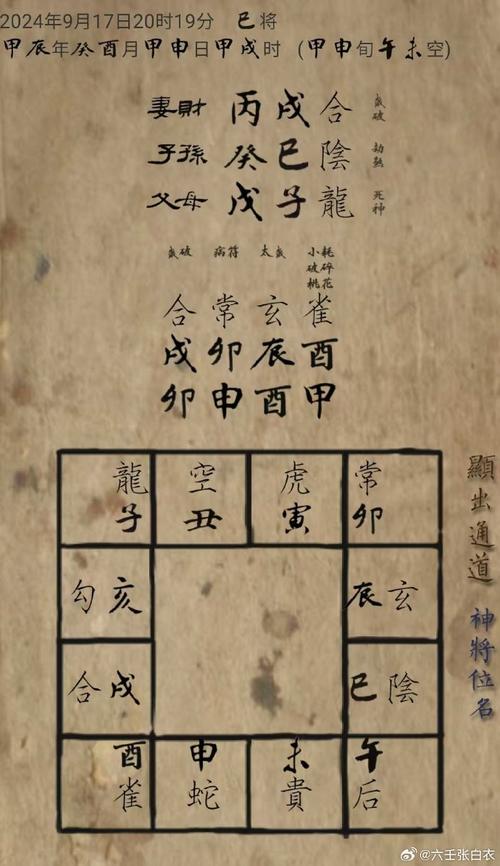 2024年9月17日20时19分 巳将
甲辰年癸酉月甲申日甲戌时 (甲申旬午未空)
妻財 丙戌合 歲破
子孫 癸巳陰 劫煞
父母 戊子龍 死神
歲破 病符 太歲 小耗
破碎
桃花
合 常 玄 雀
戌 卯 辰 酉
卯 申 酉 甲
龍 空 虎 常
子 丑 寅 卯
勾亥 辰玄
合戌 巳陰
酉 申 未 午
雀 蛇 貴 后
顯出通道
神將位名
@六壬张白衣